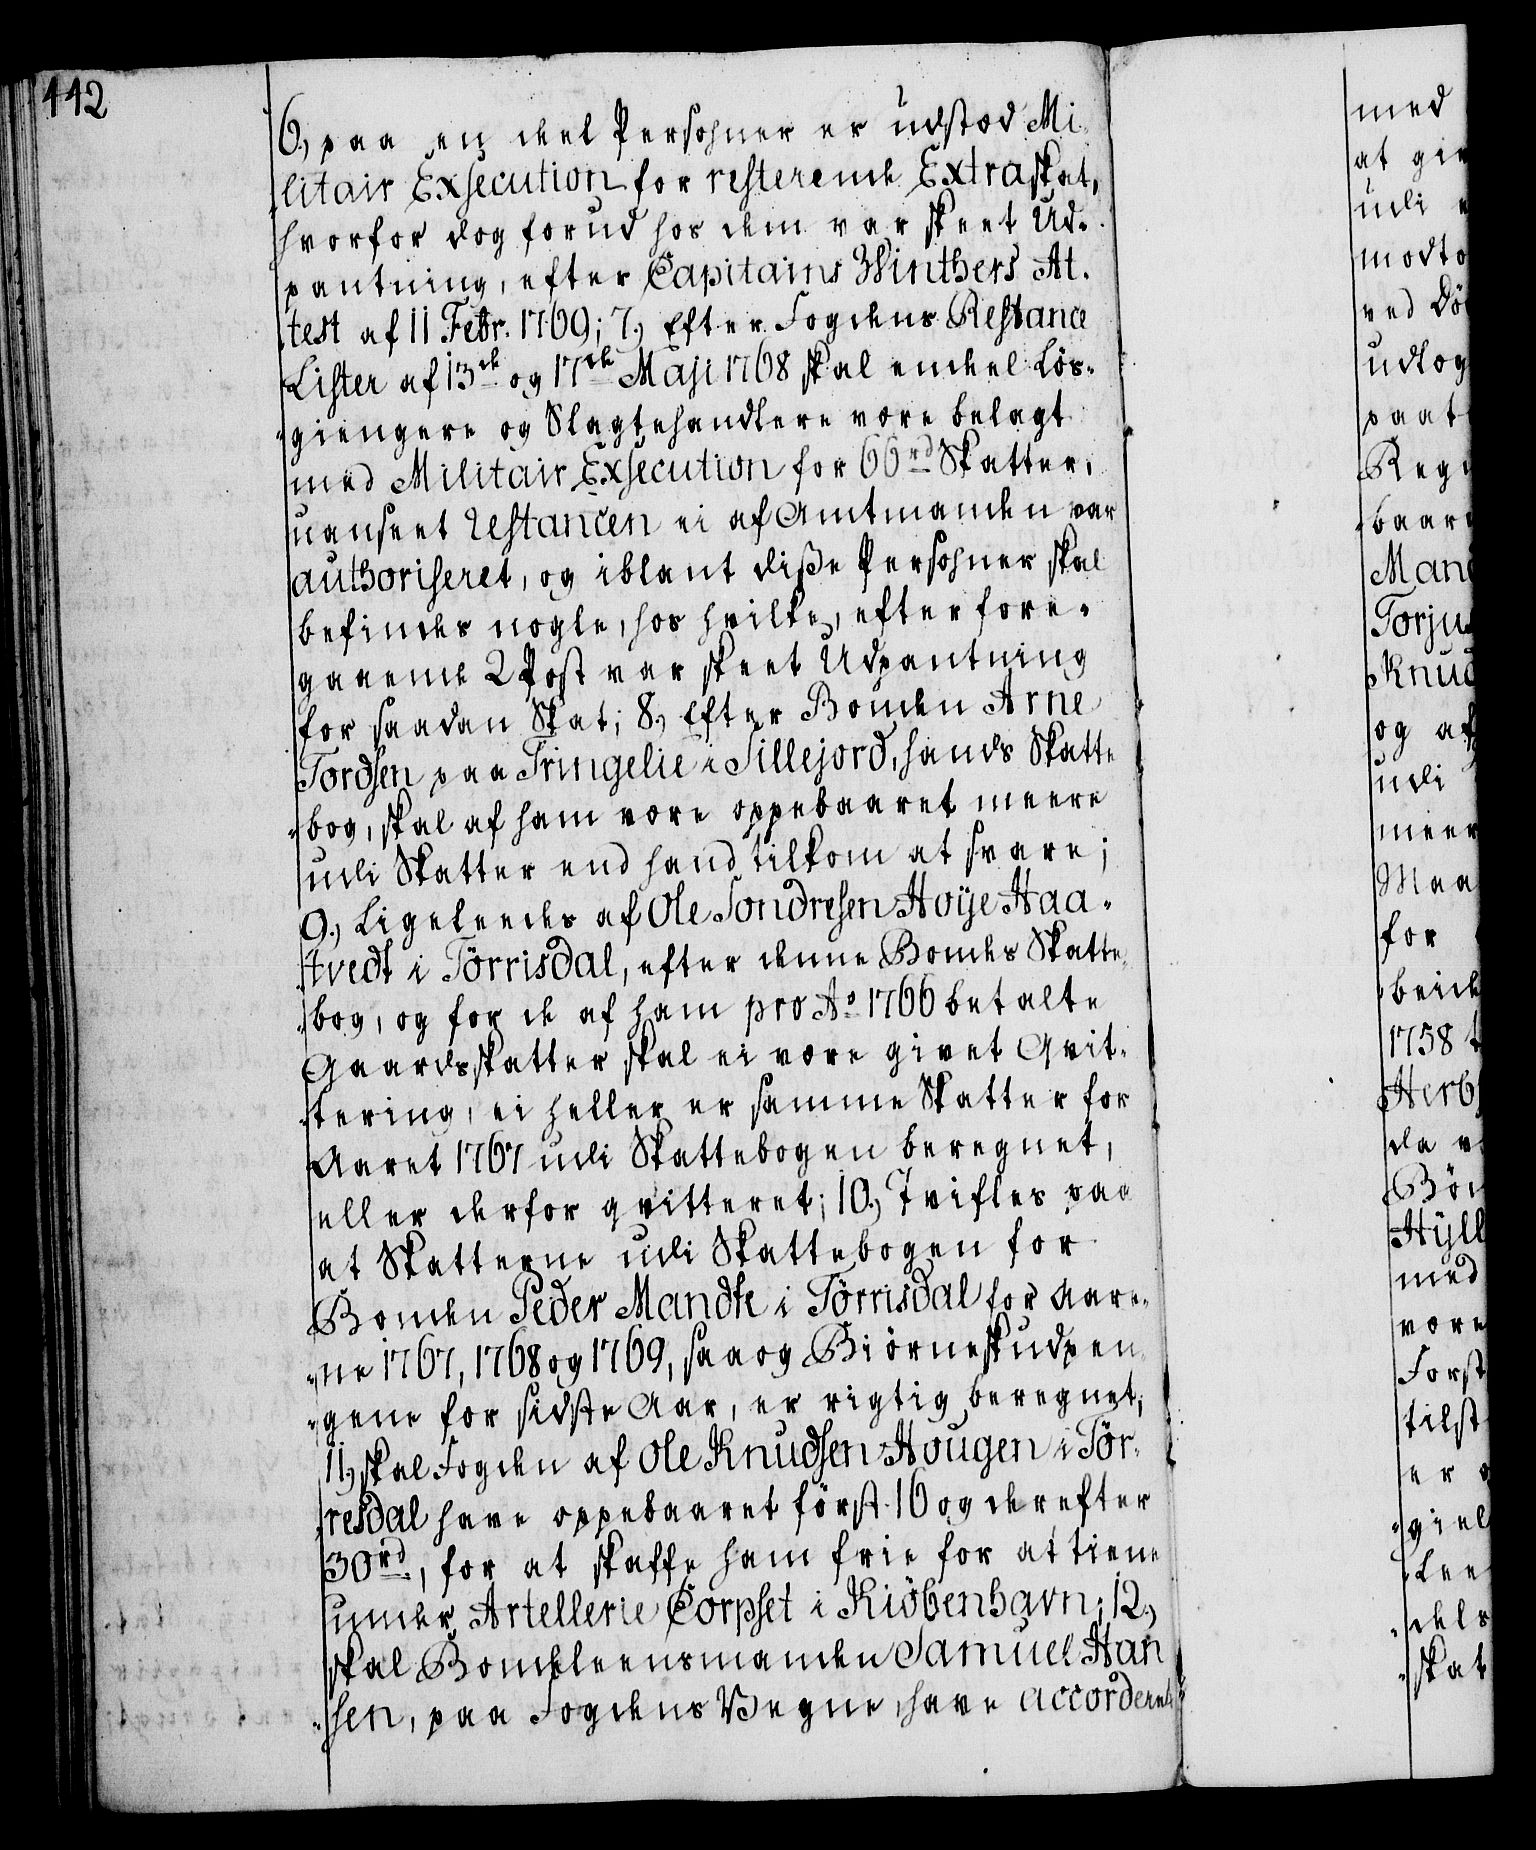 112
6., paa en deel Persohner er udstæd Mi-
litair Exsecution for resterende Extraskat,
hvorfor dog forud hos dem var skeet Ud-
pantning, efter Capitains Winthers At-
test af 11 Febr. 1769; 7., Efter Fogdens Restance
Lister af 13de og 17de Maji 1768 skal endeel Lös-
giengere og Slagtehandlere være belagt
med Militair Exsecution for 66rd Skatter,
uanseet Restancen ei af Amtmanden var
authoriseret, og iblant diße Persohner skal
befindes nogle, hos hvilke, efter fore-
gaaende 2 Post var skeet Udpantning
for saadan Skat; 8., Efter Bonden Arne
Tordsen paa Tringelie i Sillejord, hands Skatte
bog, skal af ham være oppebaaret meere
udi Skatter end hand tilkom at svare;
9., Ligeleedes af Ole Sondresen Høije Haa-
tvedt i Törrisdal, efter denne Bondes Skatte-
bog, og for de af ham pro Ao 1766 betalte
Gaardsskatter skal ei være givet Qvit-
tering, ei heller er samme Skatter for
Aaret 1767 udi Skattebogen beregnet,
eller derfor qvitteret; 10., Tvifles paa
at Skatterne udi Skattebogen for
Bonden Peder Mandte i Törrisdal for Aare-
ne 1767, 1768 og 1769, saa og Biörneskudpen-
gene for sidste Aar, er rigtig beregnet;
11., skal Fogden af Ole Knudsen Hougen i Tör-
resdal have oppebaaret först 16 og derefter
30rd, for at skaffe ham frie for at tiene
under Artellerie Corpset i Kiöbenhavn; 12.,
skal Bondeleensmanden Samuel Han
sen, paa Fogdens Vegne, have accorderet
med
at giv
udi
modto
ved Dö
udtog
paat
Reg
baar
Man
Torju
Knud
og af
udi
meer
Maa
for
beid
1758
Herb
da
Bön
Hyll
med
være
Forst
tilst
er
giel
Lee
dels
skat